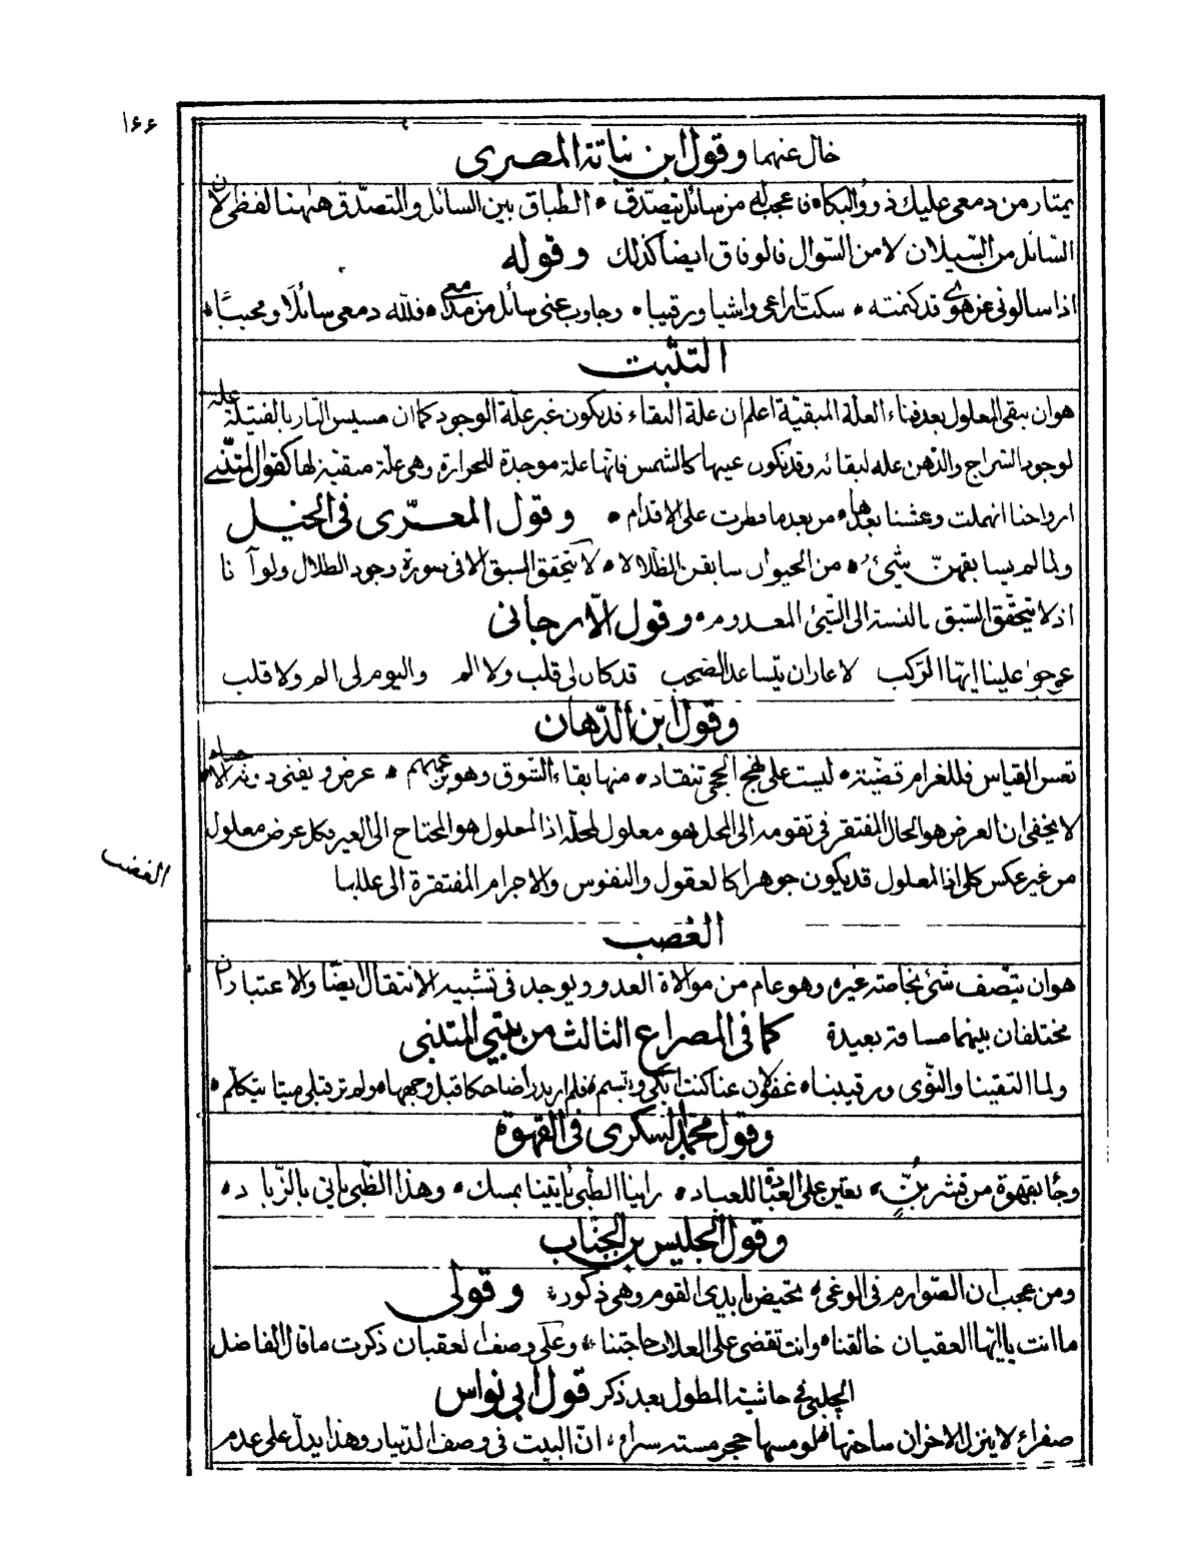 ١٦٦
خال عنهما وقول ابن نباتة المصرى
يمتار من دمعى عليك ذوو البكاء فاعجب له من سائل يتصدّق الطباق بين السائل والتصدّق ههنا لفظى لان
السّائل من السّيلان لا من السّوال فالوفاق ايضا كذلك وقوله
اذا سالونى عن هوى قد كتمته سكت اراعى واشيا ورقيبا وجاوب عنى سائل من مدامعى فلله دمعى سائلا ومجيبًا
التثبت
هو ان يبقى المعلول بعد فناء العلة المبقيّة اعلم ان علة البقاء قد يكون غير علة الوجود كما ان مسيس النّار بالفتيلة علة
لوجود السّراج والدّهن علة لبقائه وقد يكون عينها كالشمس فانّها علة موجدة للحرارة وهى علّة مبقية لها كقول المتنبّى
ارواحنا انهملت وعشنا بعدها من بعد ما قطرت على الاقدام وقول المعرّى فى الخيل
ولما لم يسابقهنّ شئ من الحيوان سابقن الظلالا لا يتحقق السبق الا فى صورة وجود الظلال ولو آنا
اذ لا يتحقّق السّبق بالنسبة الى الشّئ المعدوم وقول الارجانى
عوجوا علينا ايّها الرّكب لا عار ان يتساعد الصّحب قد كان لى قلب ولا الم واليوم لى الم ولا قلب
وقول ابن الدّهان
تعس القياس فللغرام قضيّة ليست على نهج الحجى تنقاد منها بقاء الشّوق وهو بزعمهم عرض ويفنى دونه الاجساد
لا يخفى ان العرض هو الحال المفتقر فى تقومه الى المحل فهو معلول لمحلّه اذ المعلول هو المحتاج الى الغير فكل عرض معلول
من غير عكس كلى اذ المعلول قد يكون جوهرا كالعقول والنفوس والاجرام المفتقرة الى عللها
الغصب
الغصب
هو ان يتّصف شئ بخاصة غيره وهو عام من موالاة العدو ويوجد فى تشبيه الانتقال ايضًا والاعتباران
مختلفان بينهما مسافة بعيدة كما فى المصراع الثالث من بيتي المتنبى
ولما التقينا والنّوى ورقيبنا غفولان عنا كنت ابكى ويبسم فلم ار بدرا ضاحكا قبل وجهها ولم تر قبلى ميتا يتكلّم
وقول محمد السكرى فى القهوة
وجأ بقهوة من قشر بنّ يعين على العبادة للعباد راينا الظّبى ياتينا بمسك وهذا الظّبى ياتى بالزّباد
وقول الجليس بن الجنّاب
ومن عجب ان الصّوارم فى الوغى تحيض بايدى القوم وهى ذكور وقولى
ما انت ياايّها العقيان خالقنا وانت تقضى على العلات حاجتنا وعلى وصف العقيان ذكرت ما قال الفاضل
الچلپى فى حاشية المطول بعد ذكر قول ابى نواس
صفراء لا ينزل الاحزان ساحتها فلو مسها حجر مسته سراء انّ البيت فى وصف الدّينار وهذا يدلّ على عدم